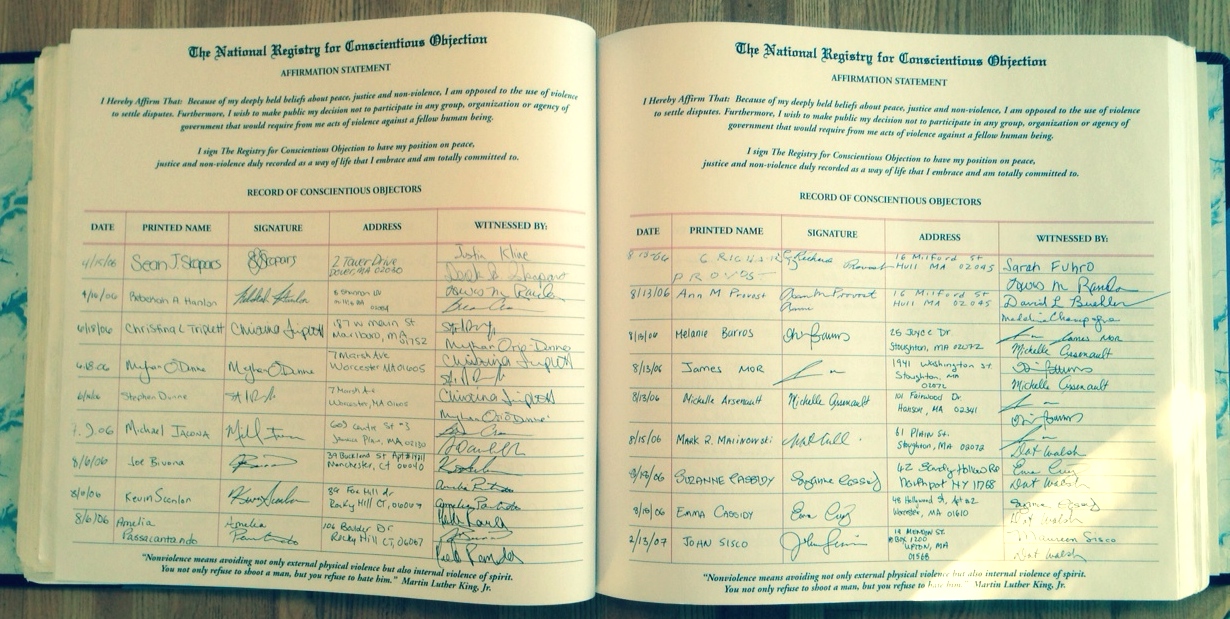 The National Registry for Conscientious Objection
AFFIRMATION STATEMENT
I Hereby Affirm That: Because of my deeply held beliefs about peace, justice and non-violence, I am opposed to the use of violence
to settle disputes. Furthermore, I wish to make public my decision not to participate in any group, organization or agency of
government that would require from me acts of violence against a fellow human being.
I sign The Registry for Conscientious Objection to have my position on peace,
justice and non-violence duly recorded as a way of life that I embrace and am totally committed to.
RECORD OF CONSCIENTIOUS OBJECTORS
DATE PRINTED NAME SIGNATURE ADDRESS WITNESSED BY:
4/15/06 Sean J. 2 Tower Drive
Dover, MA 02030
Deborah A Hanlon
6/18/06 Christina C Triplett Christina Triplett 187 W main St
Marlboro, MA 01752
6.18.06 7 March Ave
Worcester, MA 01605 Christina Triplett
Stephen Dunne 7 March Ave
Worcester, MA 01605 Christina Triplett
7.9.06 Michael Iacona 603 Centre St #3
Jamaica Plain, MA 02130
8/6/06 Joe Bivona 39 Buckland St
Manchester, CT 06040
8/6/06 Kevin Scanlon Kevin Scanlon 89 Fox Hill dr
Rocky Hill CT, 06067
8/6/06 Amelia
Passacantando Amelia 106 Boulder Dr
Rocky Hill CT, 06067
"Nonviolence means avoiding not only external physical violence but also internal violence of spirit.
You not only refuse to shoot a man, but you refuse to hate him." Martin Luther King, Jr.
The National Registry for Conscientious Objection
AFFIRMATION STATEMENT
I Hereby Affirm That: Because of my deeply held beliefs about peace, justice and non-violence, I am opposed to the use of violence
to settle disputes. Furthermore, I wish to make public my decision not to participate in any group, organization or agency of
government that would require from me acts of violence against a fellow human being.
I sign The Registry for Conscientious Objection to have my position on peace,
justice and non-violence duly recorded as a way of life that I embrace and am totally committed to.
RECORD OF CONSCIENTIOUS OBJECTORS
DATE PRINTED NAME SIGNATURE ADDRESS WITNESSED BY:
PROVOST 16 Milford St
Hull MA 02045 Sarah Fuhro
8/13/06 Ann M Provost Ann M Provost 16 Milford St
Hull MA 02045 David L Buehler
8/13/06 Melanie Barros 25 Joyce Dr.
Stoughton, MA 02072 James Mor
Michelle Arsenault
8/13/06 James MOR 1941 Washington St
Stoughton, MA
02072 Michelle Arsenault
8/13/06 Michelle Arsenault Michelle Arsenault 101 Fairwood Dr.
Hanson, MA 02341
8/15/06 Mark R. Malinowski 61 Plain St.
Stoughton, MA 02072 Dot Walsh
8/19/06 SUZANNE CASSIDY Suzanne Cassidy 42 Sandy Hollow Rd
Northport NY 11768 Dot Walsh
8/19/06 EMMA CASSIDY 48 Hollywood St, Apt #2
Worcester, MA 01610 Dot Walsh
2/13/07 JOHN SISCO 19 MENDON ST.
BOX 1200
UPTON, MA
01568 Maureen Sisco
Dot Walsh
"Nonviolence means avoiding not only external physical violence but also internal violence of spirit.
You not only refuse to shoot a man, but you refuse to hate him." Martin Luther King, Jr.